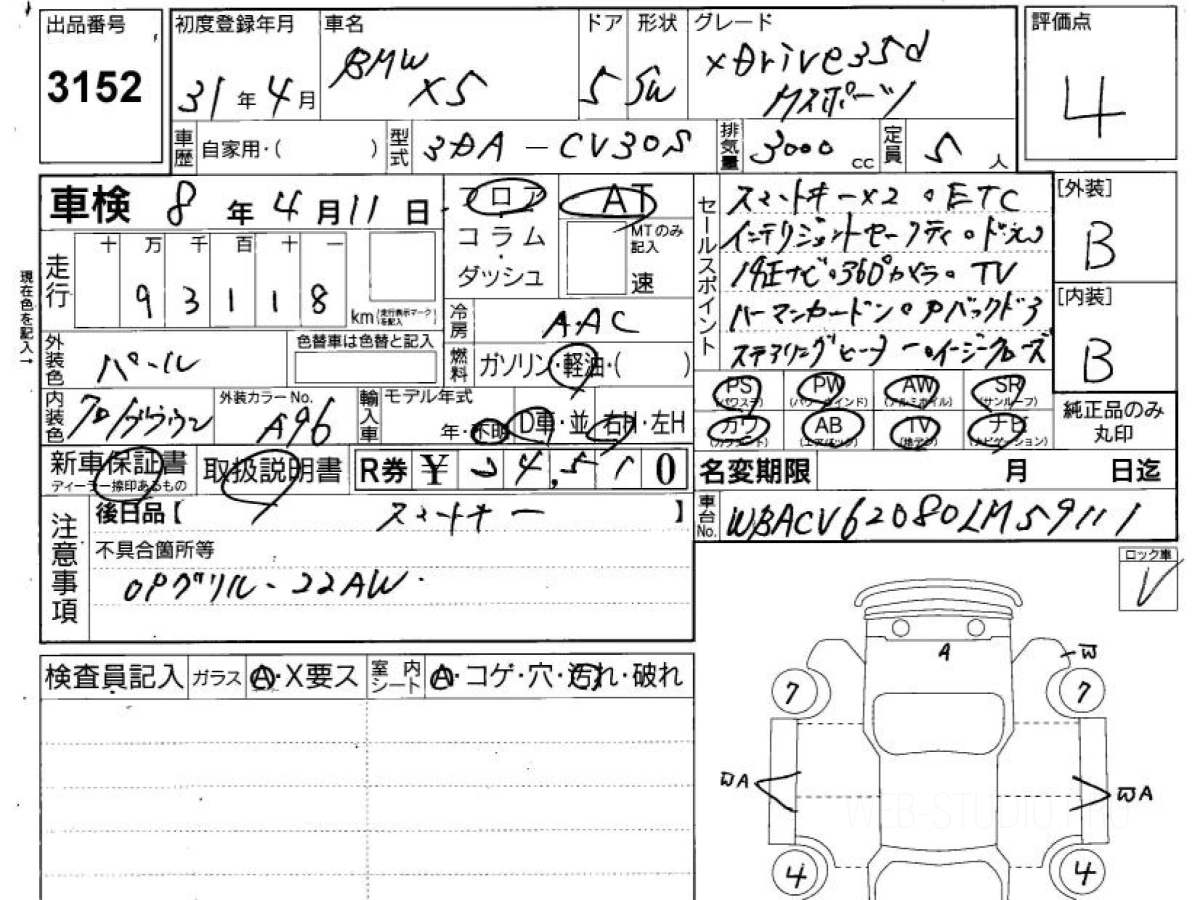 出品番号
3152
初度登録年月
31年4月
車名
BMW
X5
ドア
5
形状
SW
グレード
xDrive35d
Mスポーツ
評価点
4
車歴 自家用・( )
型式 3DA-CV30S
排気量 3000 cc
定員 5 人
車検 8年4月11日
走行
十 万 千 百 十 一
9 3 1 1 8
km (走行表示マークを記入)
現在色を記入→
フロア
コラム
・
ダッシュ
AT
MTのみ記入
速
セールスポイント
スマートキー×2。ETC
インテリジェントセーフティ。ドラレコ
純正ナビ。360°カメラ。TV
ハーマンカードン。Pバックドア
ステアリングヒーター。イージークローズ
[外装]
B
[内装]
B
冷房 AAC
外装色 パール
色替車は色替と記入
燃料 ガソリン・軽油・( )
内装色 クロ/ブラウン
外装カラーNo.
A96
輸入車
モデル年式
年・不明
D車・並
右H・左H
PS
(パワステ)
PW
(パワーウインド)
AW
(アルミホイル)
SR
(サンルーフ)
カワ
(カワシート)
AB
(エアバック)
TV
(地デジ)
ナビ
(ナビゲーション)
純正品のみ
丸印
新車保証書
ディーラー捺印あるもの
取扱説明書
R券 ¥
4,510
名変期限 月 日迄
注意事項
後日品【 スマートキー 】
車台No. WBACV62080LM59111
不具合箇所等
OPグリル・22AW・
ロック車
レ
検査員記入
ガラス
A・X要ス
室内シート
A・コゲ・穴・汚れ・破れ
A
7
7
A
A
4
4
WEB-STUDIO.PRO